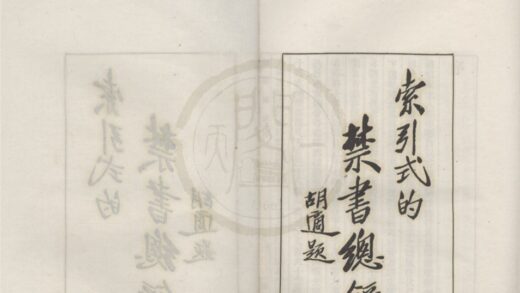 索引式的
禁書總
胡適題